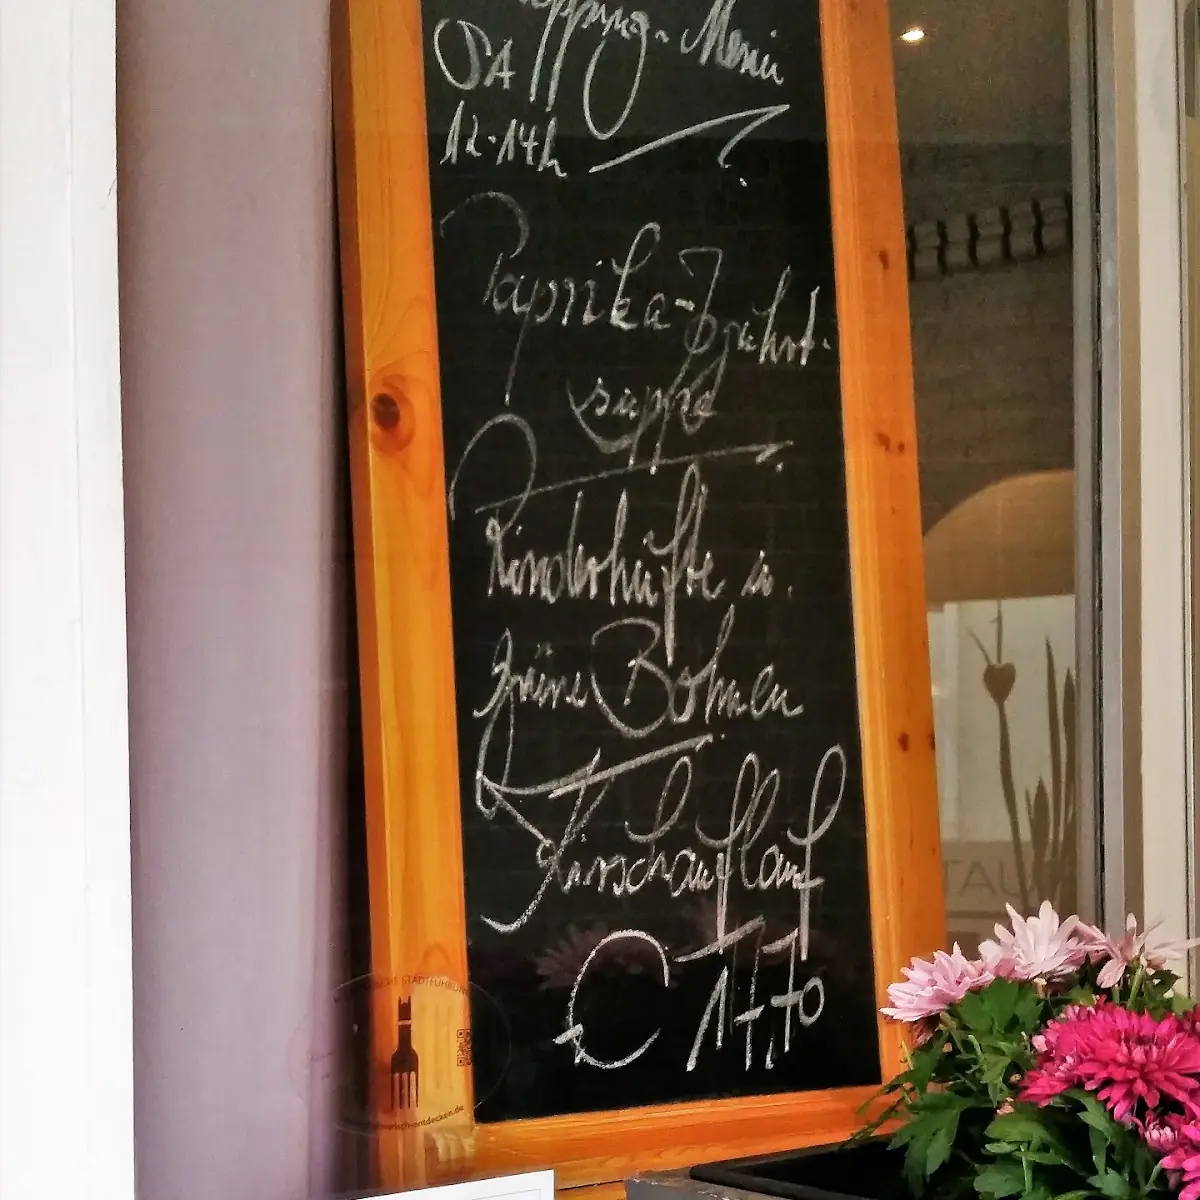 Shopping-Menü
SA
12-14h
Paprika-Joghurt-
suppe
Rinderhüfte u.
grüne Bohnen
Kirschauflauf
€ 17,70
STADTFÜHRUN
risch-entdecken.de
TAU